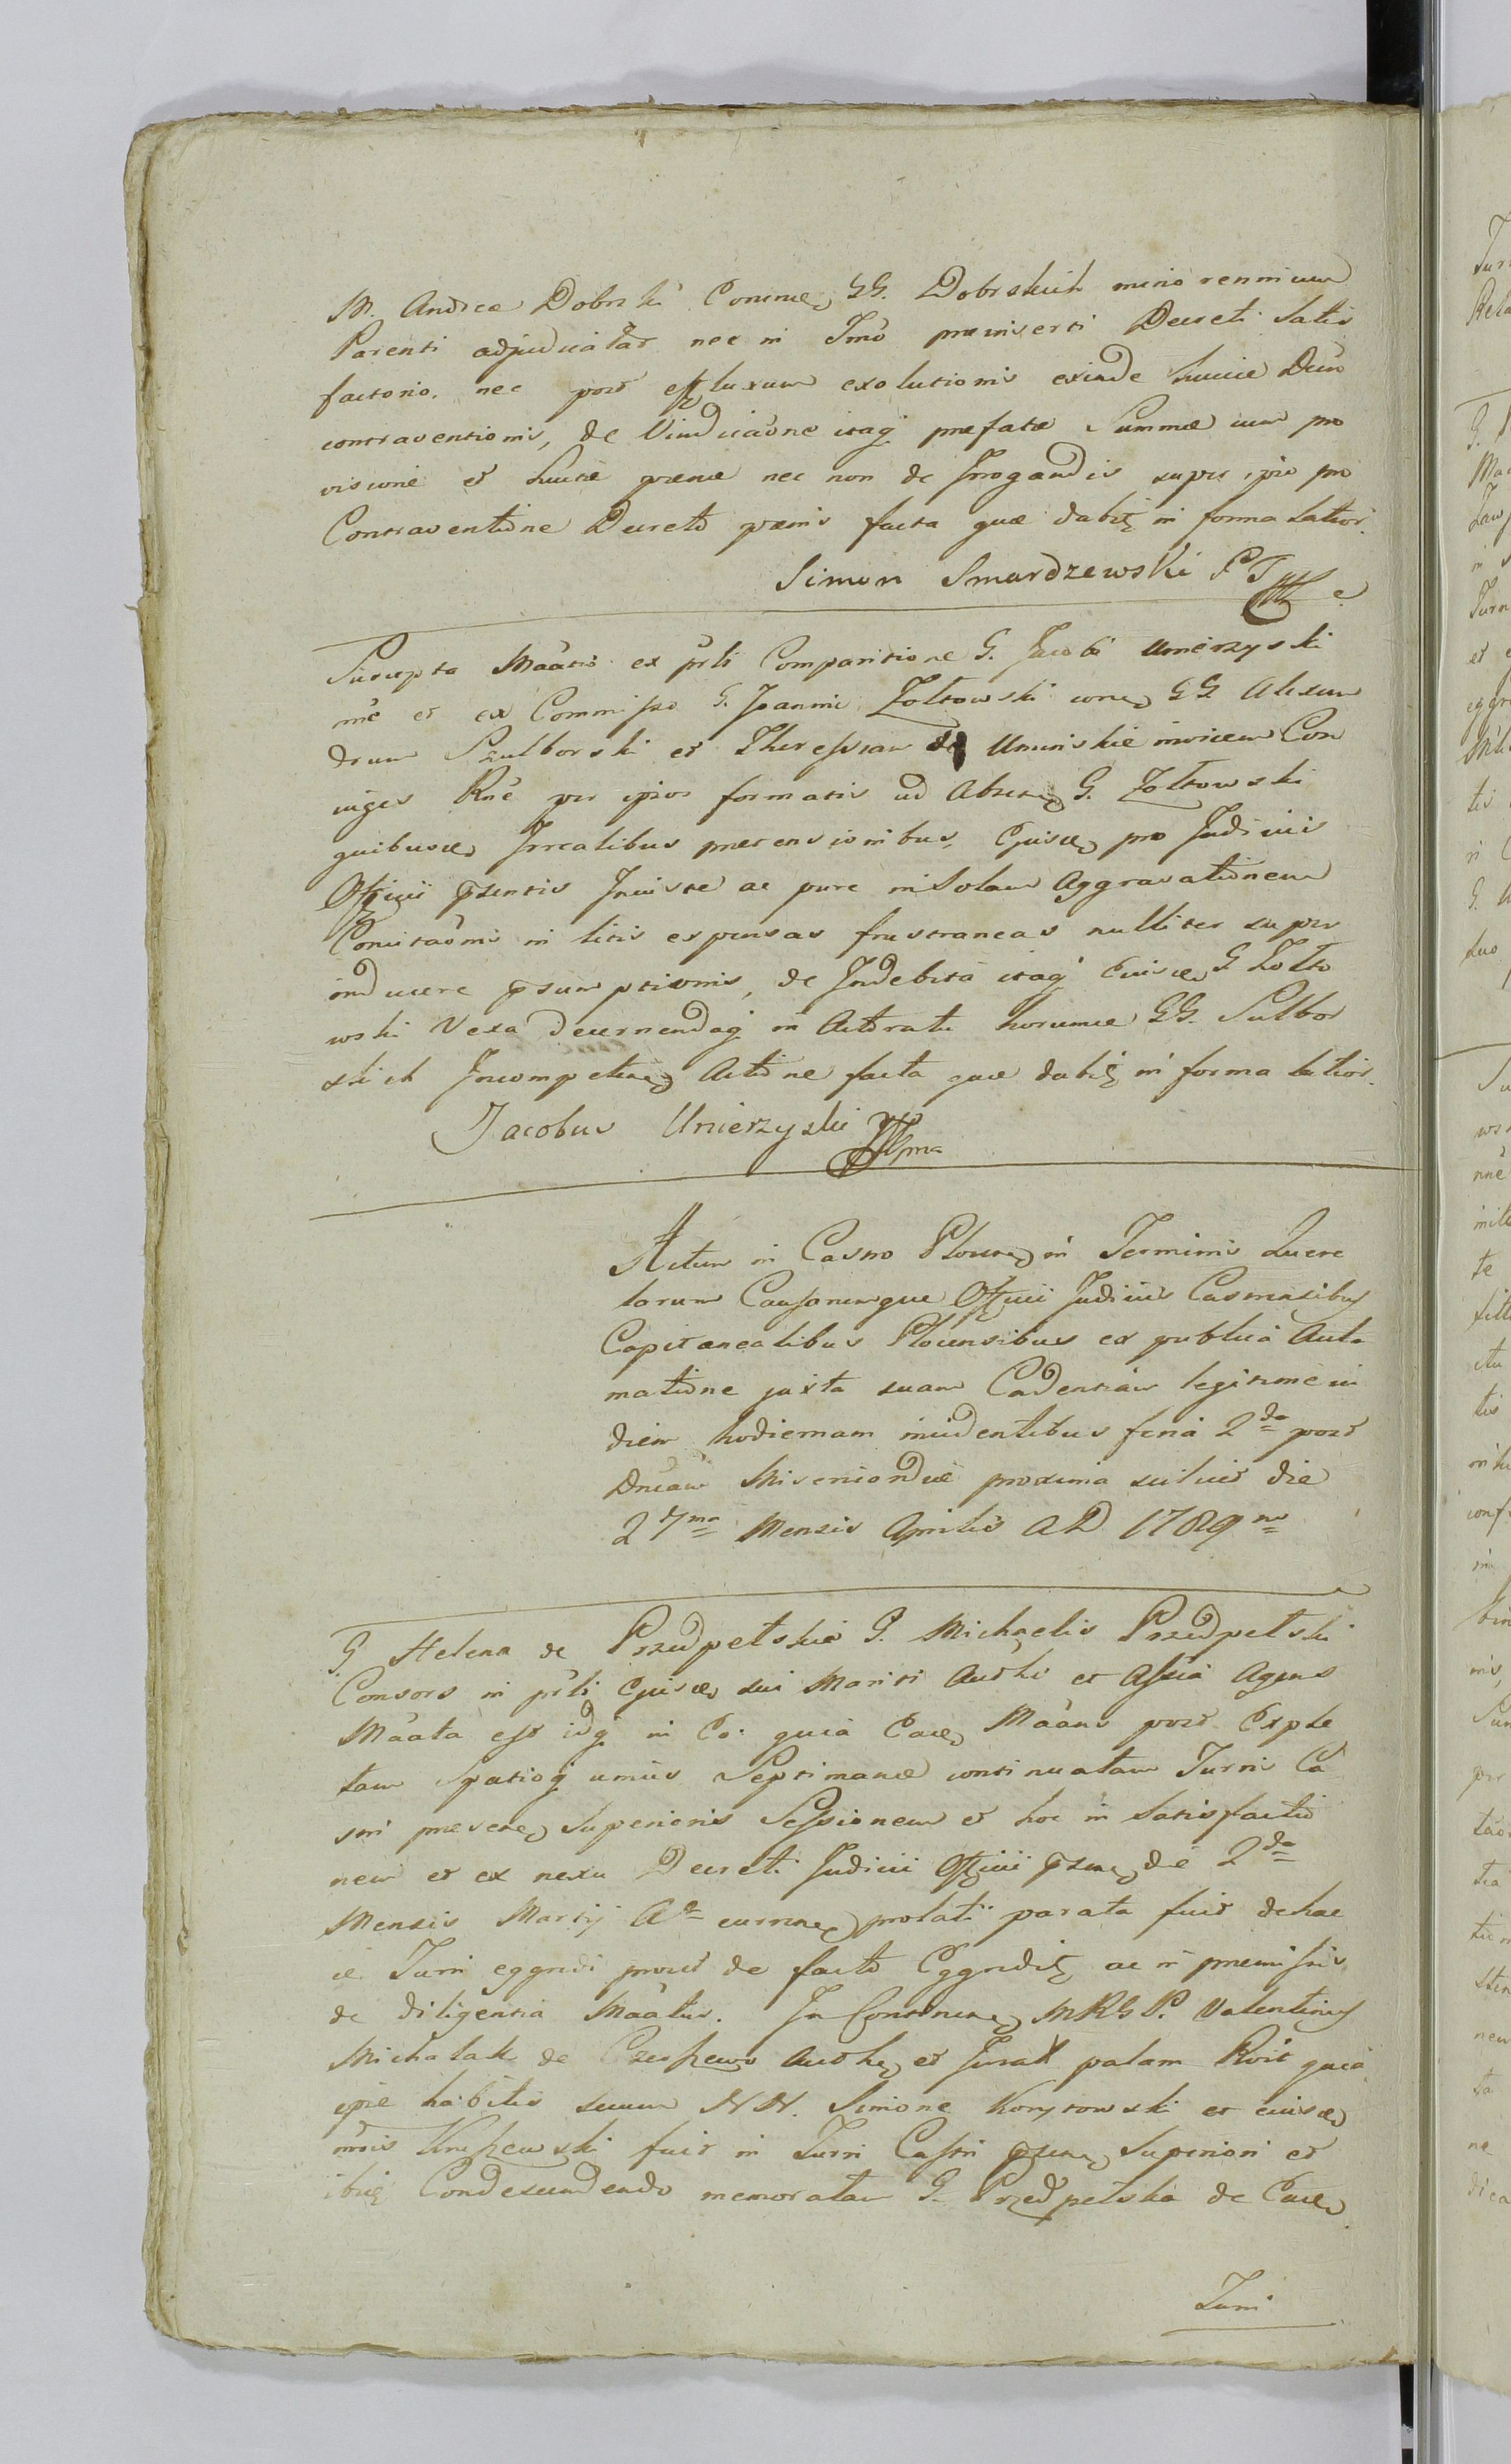 M. Andreæ Dobrski Comme GG. Dobrskich minorennium
Parenti adjudicatar nec in Imo præinserti Decreti Satis
factorio. nec post effluxum exolutionis exinde Summæ Dein
contraventionis, de Vindicaōne itaq præfatæ Summæ cum pro
visione et luitæ pænæ nec non de Irrogandis super ipso pro
Contraventione Decreto pænis facta quæ dabit in forma latior.
Simon Smardzewski P T
Suscepta Māatio ex prti Comparitione G. Jacobi Unierzyski
mē et ex Commisso G. Joannis Zołtowski cone GG Alexan
drum Szulborski et Theressiam de Uminskie invicem Con
iuges Rnē per ipsos formatis ad Absen G. Zołtowski
quibusve Irrealibus prætensionibus, Ejusve pro Judiciis
Officii psentis Iniuste ac pure in Solam Aggravationem
Conutaōnis in litis expensas frustraneas nulliter super
inducere psumptionis, de Indebita itaq Euisve G. Zołto
wski Vexa decernendaq in Attrati horumve GG. Sulbor
skich Incompeten Actione facta quæ dabit in forma latior.
Jacobus Unierzyski mpa
Actum in Castro Plocen in Terminis Quere
larum Causarumque Officii Judiciis Castrensibus
Capitanealibus Plocensibus ex publica Aucla
matione juxta suam Cadentiam legitime in
diem hodiernam incidentibus feria 2da post
Dnicam Misericordiæ proxima scilicet die
27ma Mensis Aprilis A D 1789no
G. Helena de Przedpełskie G. Michaelis Przedpełski
Consors in prti Ejusve sui Mariti Authi et Assia Agens
Māata est idq in Eo: quia Eade Māans post Exple
tam Spatioq unius Septimanæ continuatam Turris Ca
stri præsen Superioris Sessionem et hoc in Satisfactio
nem et ex nexu Decreti Judicii Officii psen de 2da
Mensis Martij Ao curren prolati parata fuit dehac
ce Turri eggredi prout de facto Eggredit ac in præmissis
de diligentia Māatur. In Continen MRGP. Valentinus
Michalak de Czerhewo Authen et Jurat palam Rvit quia
ipse habitis secum NN. Simone Korytowski et eiusve
nōis Krupczewski fuit in Turri Castri psen Superiori et
ibiq Condescendendo memoratam G. Przedpełska de Eade
Turri